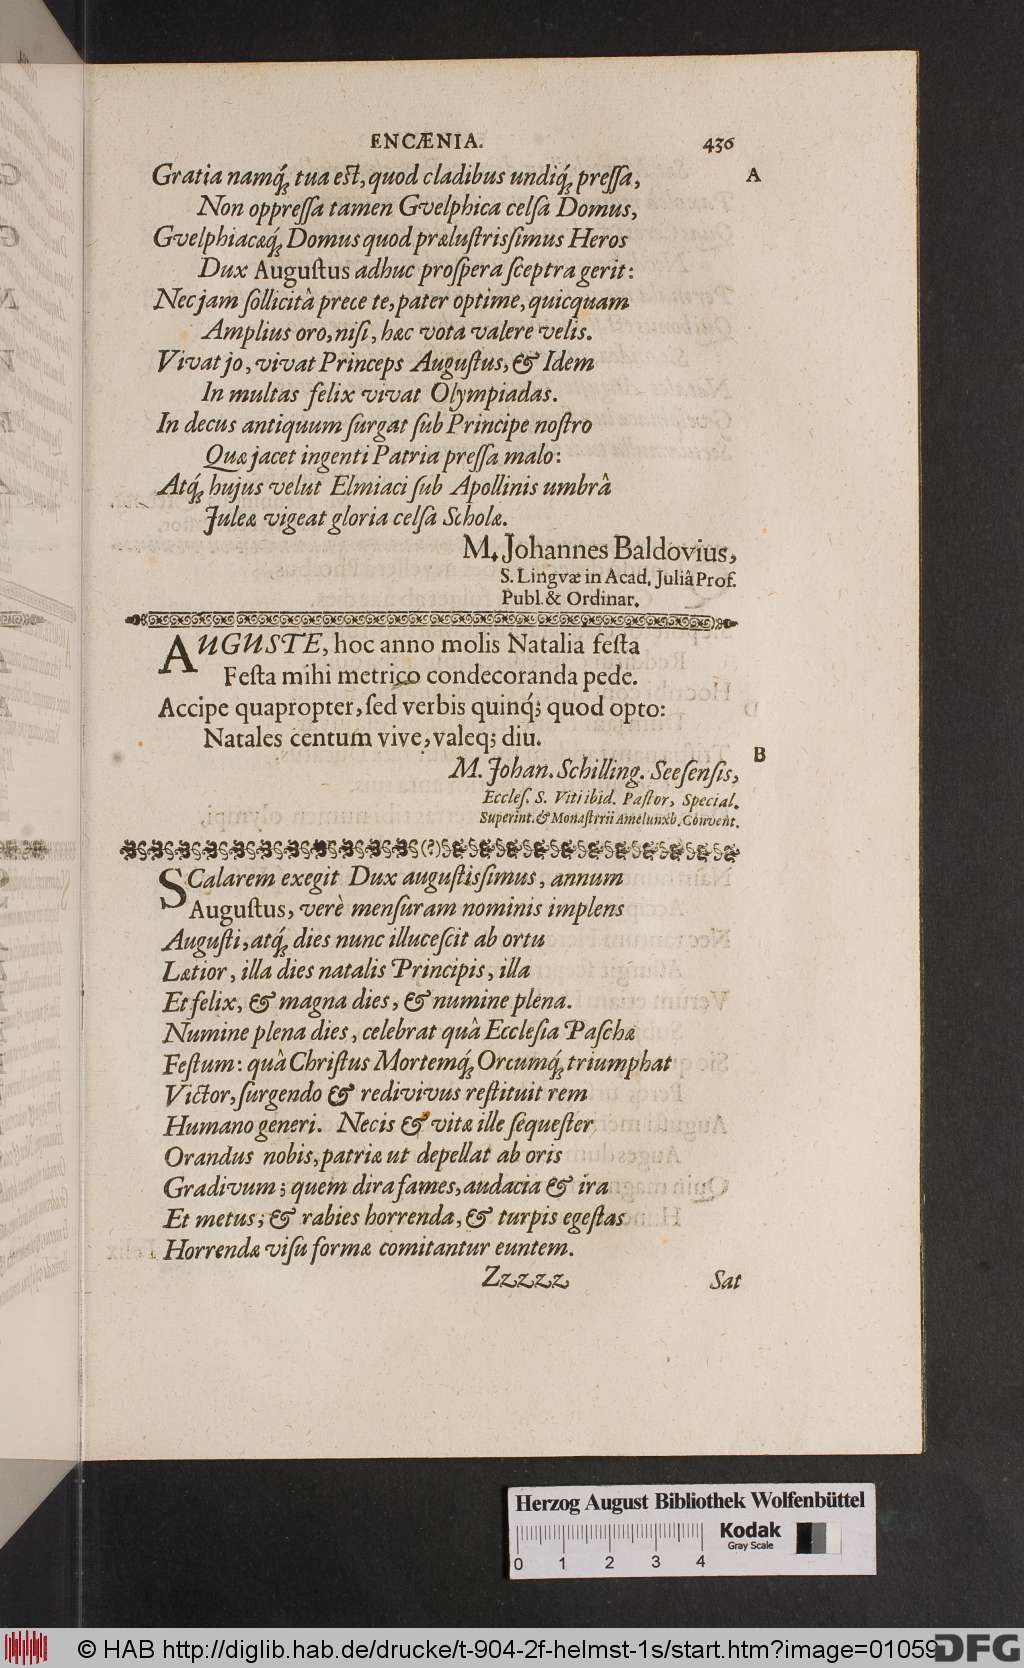 ENCÆNIA. 436
Gratia namq́ꝫ tua est, quod cladibus undiq́ꝫ preſſa, A
Non oppreſſa tamen Gvelphica celſa Domus,
Gvelphiacæq́ꝫ Domus quod præluſtrisſimus Heros
Dux Auguſtus adhuc proſpera ſceptra gerit:
Nec jam ſollicitâ prece te, pater optime, quicquam
Amplius oro, niſi, hæc vota valere velis.
Vivat jo, vivat Princeps Auguſtus, & Idem
In multas felix vivat Olympiadas.
In decus antiquum ſurgat ſub Principe noſtro
Quæ jacet ingenti Patria preſſa malo:
Atq́ꝫ hujus velut Elmiaci ſub Apollinis umbrâ
Juleæ vigeat gloria celſa Scholæ.
M. Johannes Baldovius,
S. Lingvæ in Acad. Juliâ Prof.
Publ. & Ordinar.
AUGUSTE, hoc anno molis Natalia feſta
Feſta mihi metrico condecoranda pede.
Accipe quapropter, ſed verbis quinq́; quod opto:
Natales centum vive, valeq; diu.
B
M. Johan. Schilling. Seeſenſis,
Eccleſ. S. Viti ibid. Paſtor, Special.
Superint. & Monaſtrrii Amelunxb. Convent.
(?)
SCalarem exegit Dux auguſtisſimus, annum
Auguſtus, verè menſuram nominis implens
Auguſti, atq́ꝫ dies nunc illuceſcit ab ortu
Lætior, illa dies natalis Principis, illa
Et felix, & magna dies, & numine plena.
Numine plena dies, celebrat quâ Eccleſia Paſchæ
Feſtum: quâ Chriſtus Mortemq́ꝫ Orcumq́ꝫ triumphat
Victor, ſurgendo & redivivus reſtituit rem
Humano generi. Necis & vitæ ille ſequeſter
Orandus nobis, patriæ ut depellat ab oris
Gradivum; quem dira fames, audacia & ira
Et metus; & rabies horrenda, & turpis egeſtas
Horrendæ viſu formæ comitantur euntem.
Zzzzz Sat
Herzog August Bibliothek Wolfenbüttel
0 1 2 3 4
Kodak
Gray Scale
© HAB http://diglib.hab.de/drucke/t-904-2f-helmst-1s/start.htm?image=01059
DFG